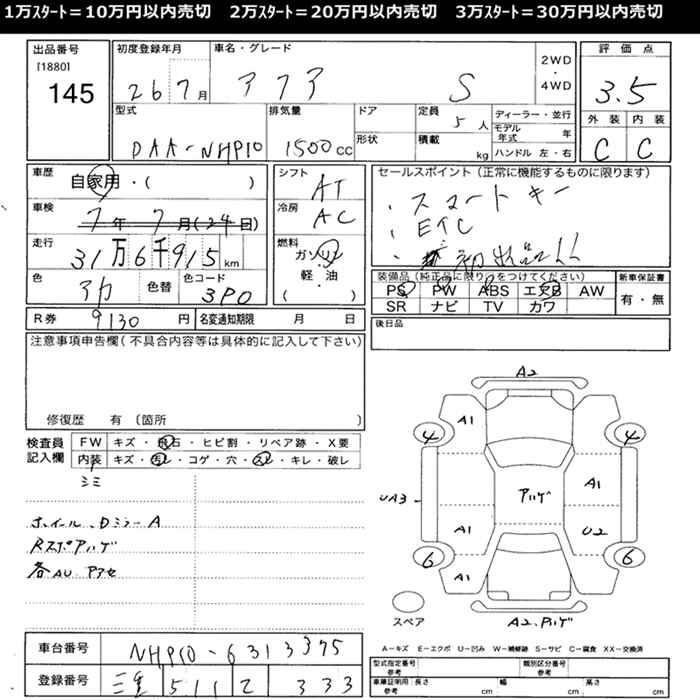 1万ｽﾀｰﾄ＝10万円以内売切　2万ｽﾀｰﾄ＝20万円以内売切　3万ｽﾀｰﾄ＝30万円以内売切
出品番号
[1880]
145
初度登録年月
26 7月
車名・グレード
アクア S
2WD
・
4WD
評価点
3.5
外装 内装
C C
型式
DAA-NHP10
排気量
1500cc
ドア
形状
定員
5人
積載
kg
ディーラー・並行
モデル年式 年
ハンドル 左・右
車歴
自家用・( )
車検
7年7月(24日)
走行
31万6千915km
色
アカ
色替
色コード
3P0
シフト
AT
冷房
AC
燃料
ガソリン
軽・油
( )
セールスポイント（正常に機能するものに限ります）
・スマートキー
・ETC
・初出品!!
装備品（純正品に限り○をつけてください）
PS PW ABS エアB AW
SR ナビ TV カワ
新車保証書
有・無
R券 9130円
名変通知期限 月 日
後日品
注意事項申告欄(不具合内容等は具体的に記入して下さい)
修復歴 有 〔箇所
検査員記入欄
FW キズ・飛石・ヒビ割・リペア跡・X要
内装 キズ・汚レ・コゲ・穴・スレ・キレ・破レ
シミ
ホイール、DミラーA
Rスポアハゲ
各AU、アセ
A2
A1
4
4
UA3
アハゲ
A1
A1
U2
6
6
A1
スペア
A2、アハゲ
A－キズ E－エクボ U－凹み W－補修跡 S－サビ C－腐食 XX－交換済
車台番号 NHP10-6313375
登録番号 三重 511 2 333
型式指定番号
参考
類別区分番号
参考
車庫証明用
参考
長さ cm 幅 cm 高さ cm